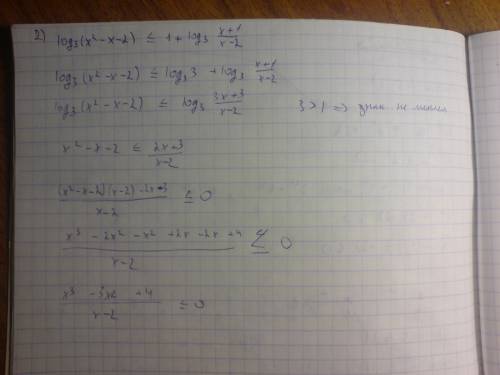 2) log₃(x²-x-2) ≤ 1 + log₃ (x+1)/(x-2)
log₃(x²-x-2) ≤ log₃ 3 + log₃ (x+1)/(x-2)
log₃(x²-x-2) ≤ log₃ (3x+3)/(x-2) 3>1 => знак не меняем
x²-x-2 ≤ (2x+3)/(x-2)
((x²-x-2)(x-2)-2x+3)/(x-2) ≤ 0
(x³-2x²-x²+2x-2x+4)/(x-2) ≤ 0
(x³-3x2+4)/(x-2) ≤ 0